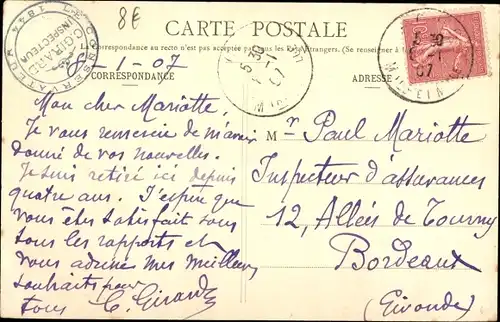 8€
CARTE POSTALE
La correspondance au recto n'est pas acceptée par tous les Pays Étrangers. (Se renseigner à
CORRESPONDANCE
ADRESSE
CONSERVATEUR 1844
C. GIRARD
INSPECTEUR
8-1-07
Mon cher Mariotte,
Je vous remercie de m'avoir
donné de vos nouvelles.
Je suis retiré ici depuis
quatre ans. J'espère que
vous êtes satisfait sous
tous les rapports et
vous adresse mes meilleurs
souhaits pour
tous C. Girard
Mr Paul Mariotte
Inspecteur d'assurances
12, Allées de Tourny
Bordeaux
(Gironde)